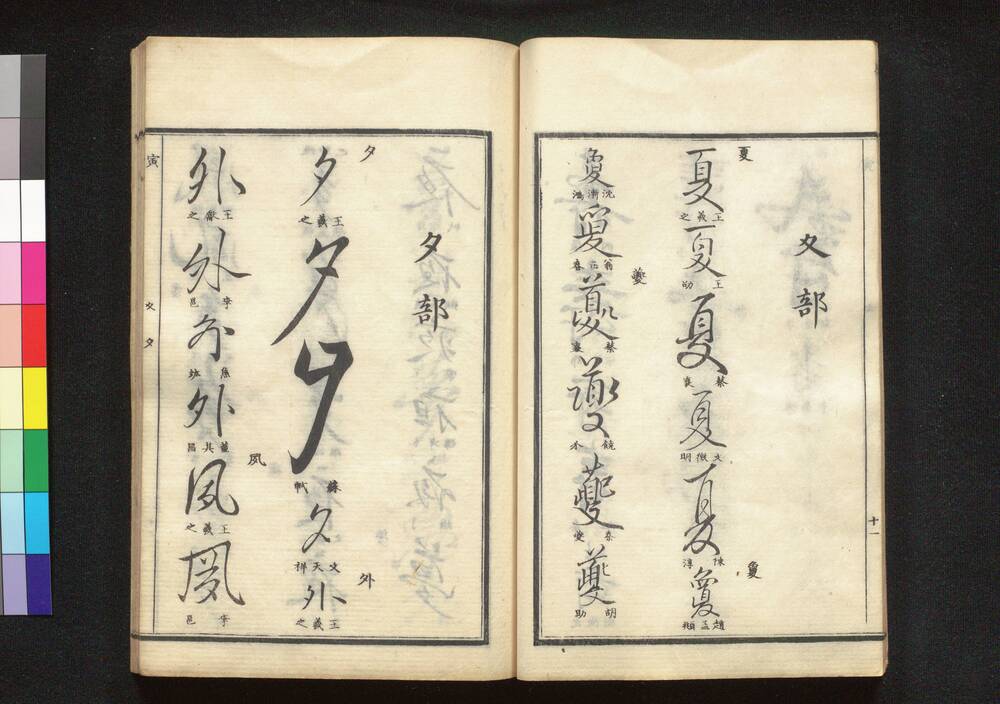 夊部
夏
夏 王羲之
夏 王助
夏 蔡襄
夏 文徵明
夏 陳淳
夐
夐 趙孟頫
夐 沈漸鴻
夐 翁正春
夔
夔 蔡襄
夔 饒介
夔
夔 胡助
十一
夕部
夕
夕 王羲之
夕
夕 蘇軾
夕 文天祥
外
外 王羲之
外 王獻之
外 李邕
外 焦竑
外 董其昌
夙
夙 王羲之
夙 李邕
寅
夊夕